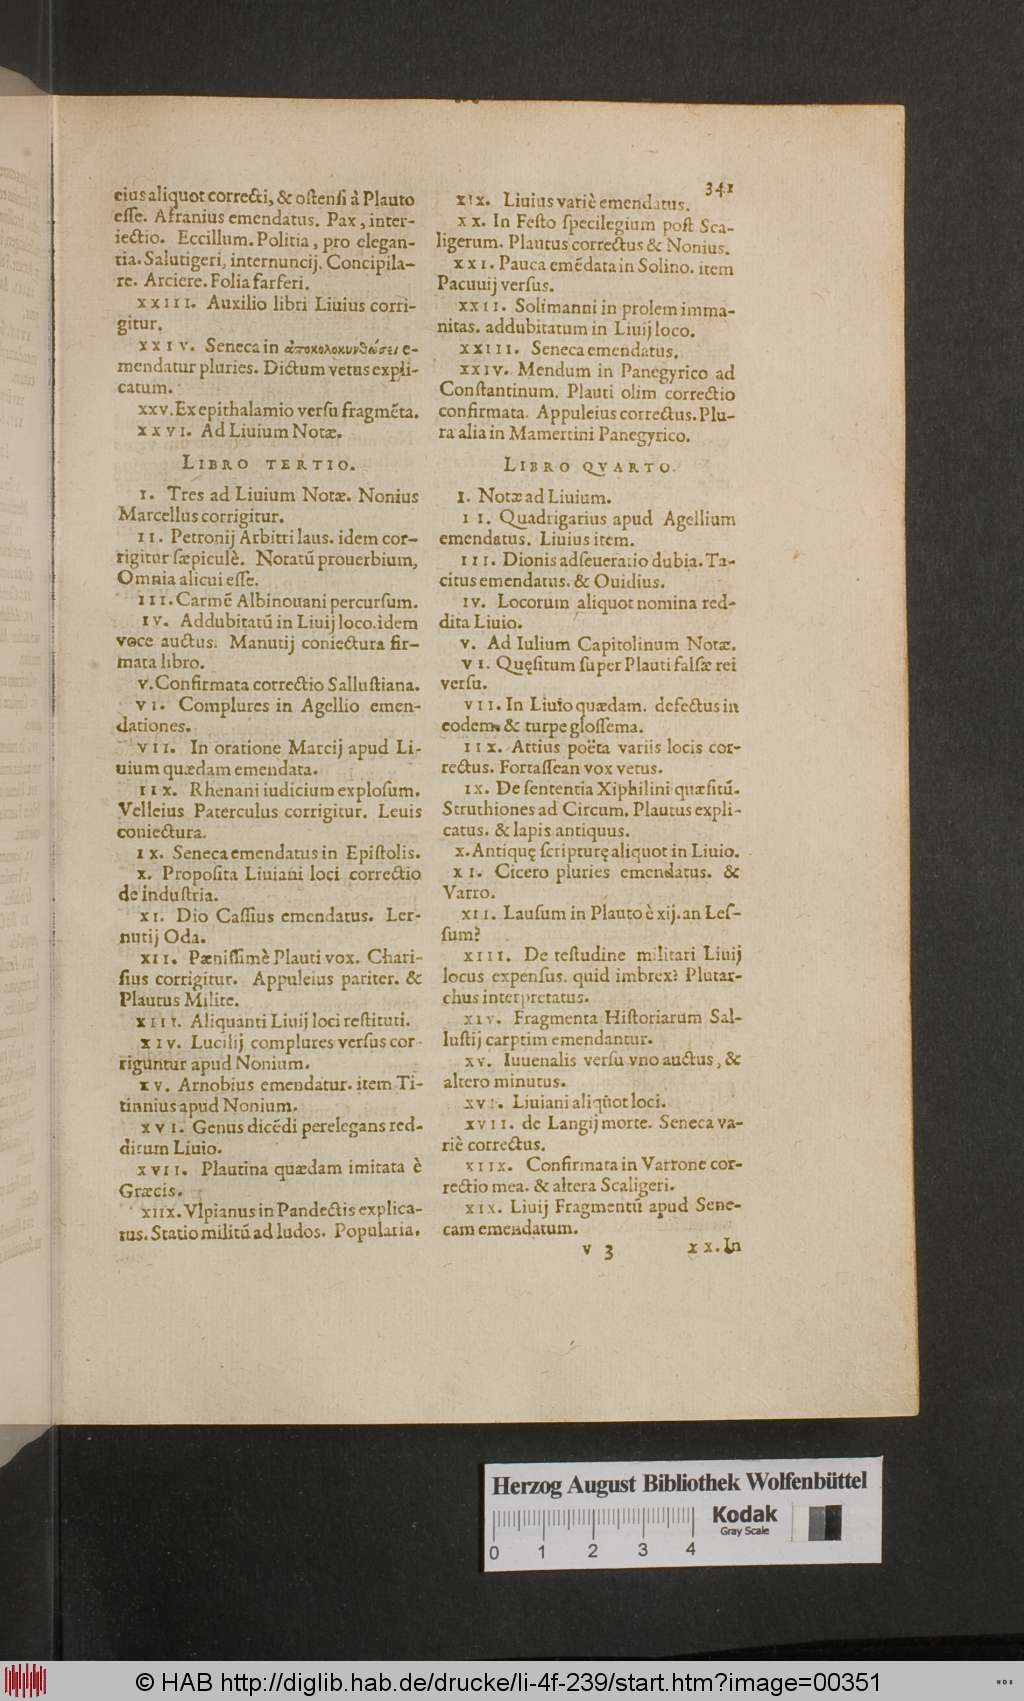 341
eius aliquot correcti, & ostensi à Plauto
esse. Afranius emendatus. Pax, inter-
iectio. Eccillum. Politia, pro elegan-
tia. Salutigeri, internuncij. Concipila-
re. Arciere. Folia farferi.
XXIII. Auxilio libri Liuius corri-
gitur.
XXIV. Seneca in ἀποκολοκυνθώσει e-
mendatur pluries. Dictum vetus expli-
catum.
XXV. Ex epithalamio versu fragmẽta.
XXVI. Ad Liuium Notæ.
LIBRO TERTIO.
I. Tres ad Liuium Notæ. Nonius
Marcellus corrigitur.
II. Petronij Arbitri laus. idem cor-
rigitur sæpiculè. Notatũ prouerbium,
Omnia alicui esse.
III. Carmẽ Albinouani percursum.
IV. Addubitatũ in Liuij loco. idem
voce auctus. Manutij coniectura fir-
mata libro.
V. Confirmata correctio Sallustiana.
VI. Complures in Agellio emen-
dationes.
VII. In oratione Marcij apud Li-
uium quædam emendata.
IIX. Rhenani iudicium explosum.
Velleius Paterculus corrigitur. Leuis
coniectura.
IX. Seneca emendatus in Epistolis.
X. Proposita Liuiani loci correctio
de industria.
XI. Dio Cassius emendatus. Ler-
nutij Oda.
XII. Pænissimè Plauti vox. Chari-
sius corrigitur. Appuleius pariter. &
Plautus Milite.
XIII. Aliquanti Liuij loci restituti.
XIV. Lucilij complures versus cor-
riguntur apud Nonium.
XV. Arnobius emendatur. item Ti-
tinnius apud Nonium.
XVI. Genus dicẽdi perelegans red-
ditum Liuio.
XVII. Plautina quædam imitata è
Græcis.
XIIX. Vlpianus in Pandectis explica-
tus. Statio militũ ad ludos. Popularia.
XIX. Liuius variè emendatus.
XX. In Festo specilegium post Sca-
ligerum. Plautus correctus & Nonius.
XXI. Pauca emẽdata in Solino. item
Pacuuij versus.
XXII. Solimanni in prolem imma-
nitas. addubitatum in Liuij loco.
XXIII. Seneca emendatus.
XXIV. Mendum in Panegyrico ad
Constantinum. Plauti olim correctio
confirmata. Appuleius correctus. Plu-
ra alia in Mamertini Panegyrico.
LIBRO QVARTO.
I. Notæ ad Liuium.
II. Quadrigarius apud Agellium
emendatus. Liuius item.
III. Dionis adseueratio dubia. Ta-
citus emendatus. & Ouidius.
IV. Locorum aliquot nomina red-
dita Liuio.
V. Ad Iulium Capitolinum Notæ.
VI. Quęsitum super Plauti falsæ rei
versu.
VII. In Liuio quædam. defectus in
eodem. & turpe glossema.
IIX. Attius poëta variis locis cor-
rectus. Fortassean vox vetus.
IX. De sententia Xiphilini quæsitũ.
Struthiones ad Circum. Plautus expli-
catus. & lapis antiquus.
X. Antiquę scripturę aliquot in Liuio.
XI. Cicero pluries emendatus. &
Varro.
XII. Lausum in Plauto è xij. an Les-
sum?
XIII. De testudine militari Liuij
locus expensus. quid imbrex? Plutar-
chus interpretatus.
XIV. Fragmenta Historiarum Sal-
lustij carptim emendantur.
XV. Iuuenalis versu vno auctus, &
altero minutus.
XVI. Liuiani aliqūot loci.
XVII. de Langij morte. Seneca va-
riè correctus.
XIIX. Confirmata in Varrone cor-
rectio mea. & altera Scaligeri.
XIX. Liuij Fragmentũ apud Sene-
cam emendatum.
V 3 XX. In
Herzog August Bibliothek Wolfenbüttel
Kodak
Gray Scale
0 1 2 3 4
© HAB http://diglib.hab.de/drucke/li-4f-239/start.htm?image=00351